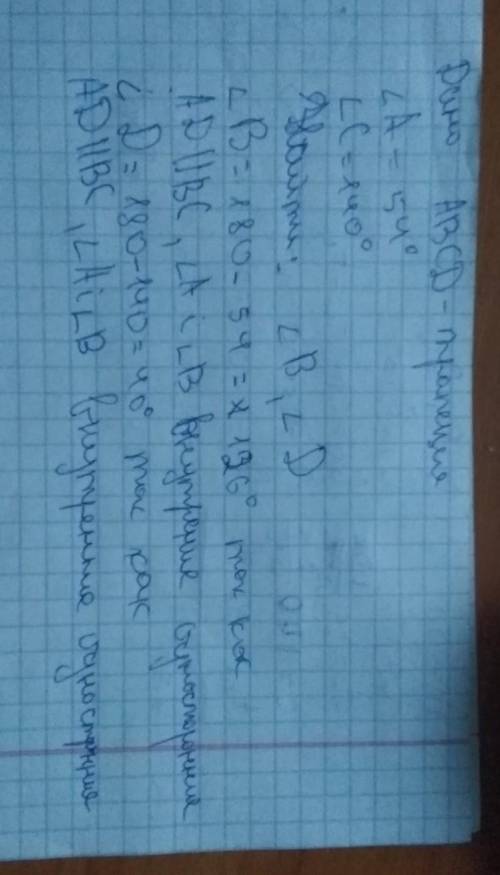 Дано ABCD - трапеция
∠A = 54°
∠C = 140°
Найти: ∠B, ∠D
∠B = 180 - 54 = 126° так как
AD||BC, ∠A i ∠B внутрение односторонние
∠D = 180-140 = 40° так как
AD||BC, ∠A i ∠B внутренние односторонние